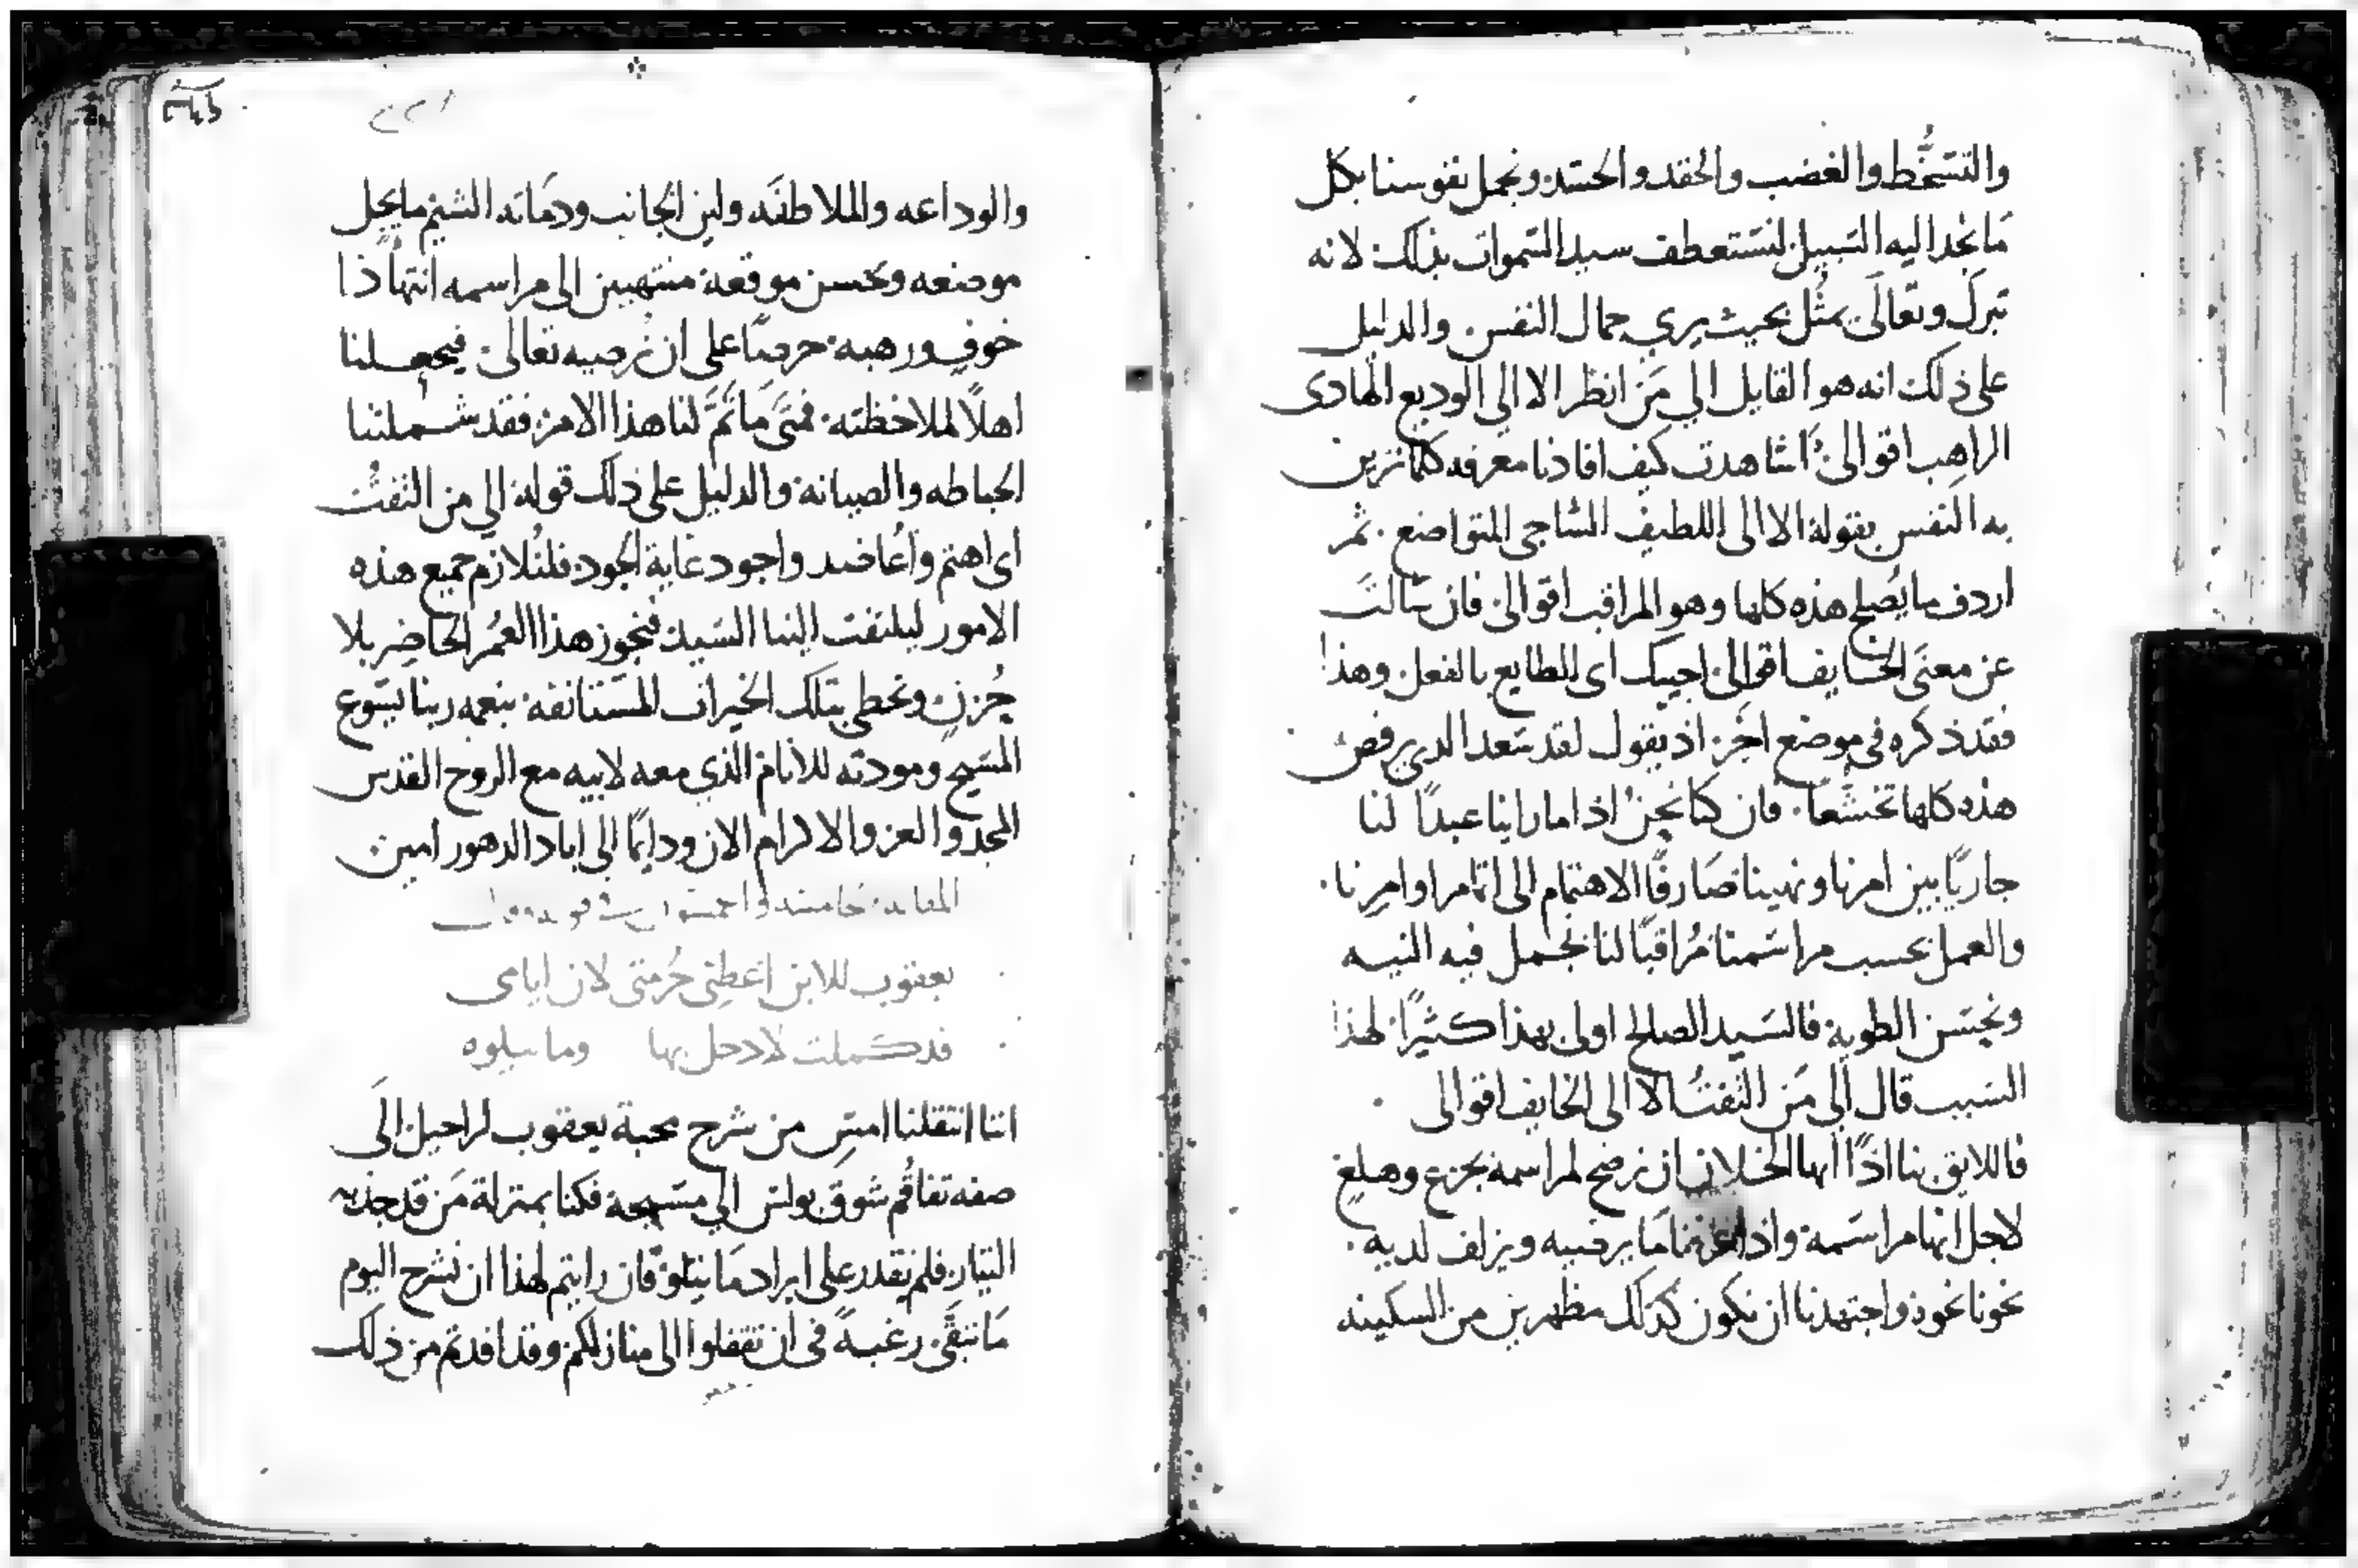 والتسَخُّط والغضب والحقد والحسَد ونجمل نفوسنا بكل
مَا نجد اليه السَبيل لنسَتعطف سيد السَموات بذلك لانه
تبرك وتعالَى يمثُل بحيث يري جمال النفس والدليل
على ذلك انه هو القايل الي مَن انظر الا الي الوديع الهادى
الراهِب اقوالى أشاهدت كيف افادنا معرفه كلما تزين
به النفس بقوله الا الى اللطيف السَاجى المتواضع . ثمر
اردف ما يُصلح هذه كلها وهو المراقب اقوالى فان سَالتَ
عن معنَى الخايف اقوالى اجيبك اى للطايع بالفعل وهذا
فقد ذكره فى موضع اخر اذ يقول لقد سَعد الدي يرفض
هذه كلها تخشعًا . فان كنا نحنُ اذا ما راينا عبدًا لنا
جاريًا بين امرنا ونهينا صَارفًا الاهتمام الى اتمام اوامرِنا .
والعمل بحسب مراسَمنا مُراقبًا لنا نجمل فيه النيه
ونحسَن الطويه فالسَيد الصالح اولى بهذا كثيرًا لهذا
السَبب قال الى مَن التفتُ الا الى الخايف اقوالى
فاللايق بنا اذًا ايها الخلان ان نرضخ لمراسمه بجزع وهلعٍ
لاجل انها مراسَمه واذا عزمنا مَا يرضيه ويزلف لديه .
نحونا نحوه واجتهدنا ان نكون كذلك مظهرين من السكينه
والوداعه والملاطفَه ولين الجانب ودمَاثه الشيم ما يجل
موضعه ويحسن موقعه منتهيين الى مراسمه انتهآ ذا
خوفٍ ورهبه حرصًا على ان نُرضيه تعالى فيجعلنا
اهلاً لملاحظته فمتَى مَا تَمَّ لنا هذا الامر فقد شملتنا
الحياطه والصيانه والدليل على ذلك قوله الي من التفتُ
اى اهتم واعُاضد واجود غاية الجود فلنُلازم جميع هذه
الامور ليلتفت الينا السَيد فنجوز هذا العمُر الحاضِر بلا
حُزنٍ ونحظى بتلك الخيرات المسَتانفه بنعمه ربنا يسَوع
المسَيح ومودته للانام الذي معه لابيه مع الروح القدس
المجد والعز والاكرام الان ودايمًا الى اباد الدهور امين
يعقوب للابن اعَطِنى حُرمتى لان ايامى
قد كملت لادخل بها وما يتلوه
اننا انتقلنا امسِ من شرح محبة يعقوب لراحيل الَى
صفه تفاقُم شوقَ بولسَ الي مسَيحه فكنا بمنزلة مَن قد جذبه
التيار فلم نقدر على ايراد مَا يتلوَه فان رايتم لهذا ان نشرح اليوم
مَا تبقَّى رغبهً فى ان تقفلوا الى منازلكم وقد افدتم من ذلك